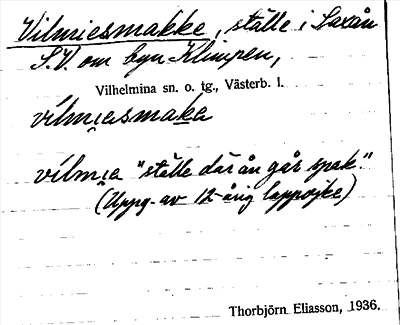 Vilmiesmakke, ställe i Saxån
S.V. om byn Klimpen,
Vilhelmina sn. o. tg., Västerb. l.
vílmi̯esmaka
vílmi̯e "ställe där ån går spak."
(Uppg. av 12-årig lappojke)
Thorbjörn Eliasson, 1936.